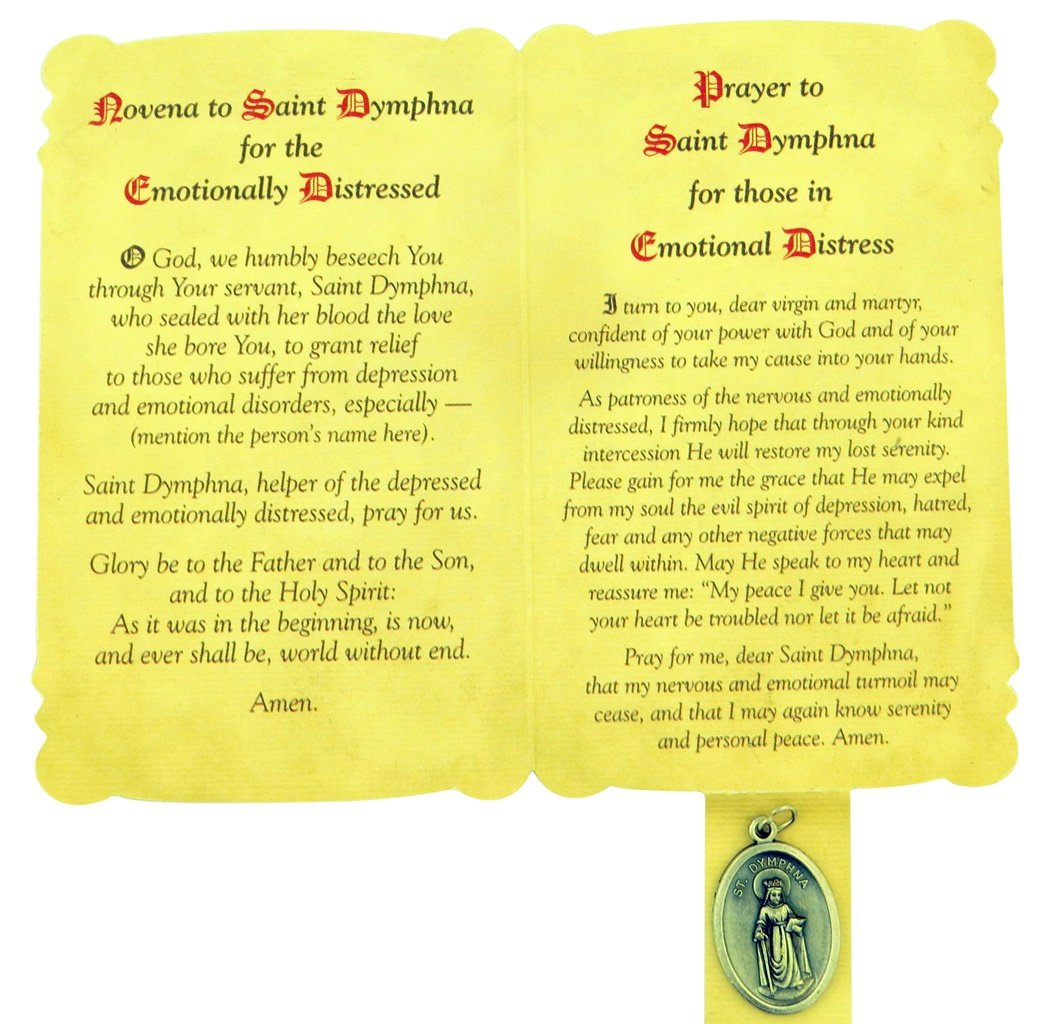 Novena to Saint Dymphna
for the
Emotionally Distressed
O God, we humbly beseech You
through Your servant, Saint Dymphna,
who sealed with her blood the love
she bore You, to grant relief
to those who suffer from depression
and emotional disorders, especially —
(mention the person's name here).
Saint Dymphna, helper of the depressed
and emotionally distressed, pray for us.
Glory be to the Father and to the Son,
and to the Holy Spirit:
As it was in the beginning, is now,
and ever shall be, world without end.
Amen.
Prayer to
Saint Dymphna
for those in
Emotional Distress
I turn to you, dear virgin and martyr,
confident of your power with God and of your
willingness to take my cause into your hands.
As patroness of the nervous and emotionally
distressed, I firmly hope that through your kind
intercession He will restore my lost serenity.
Please gain for me the grace that He may expel
from my soul the evil spirit of depression, hatred,
fear and any other negative forces that may
dwell within. May He speak to my heart and
reassure me: “My peace I give you. Let not
your heart be troubled nor let it be afraid.”
Pray for me, dear Saint Dymphna,
that my nervous and emotional turmoil may
cease, and that I may again know serenity
and personal peace. Amen.
ST. DYMPHNA